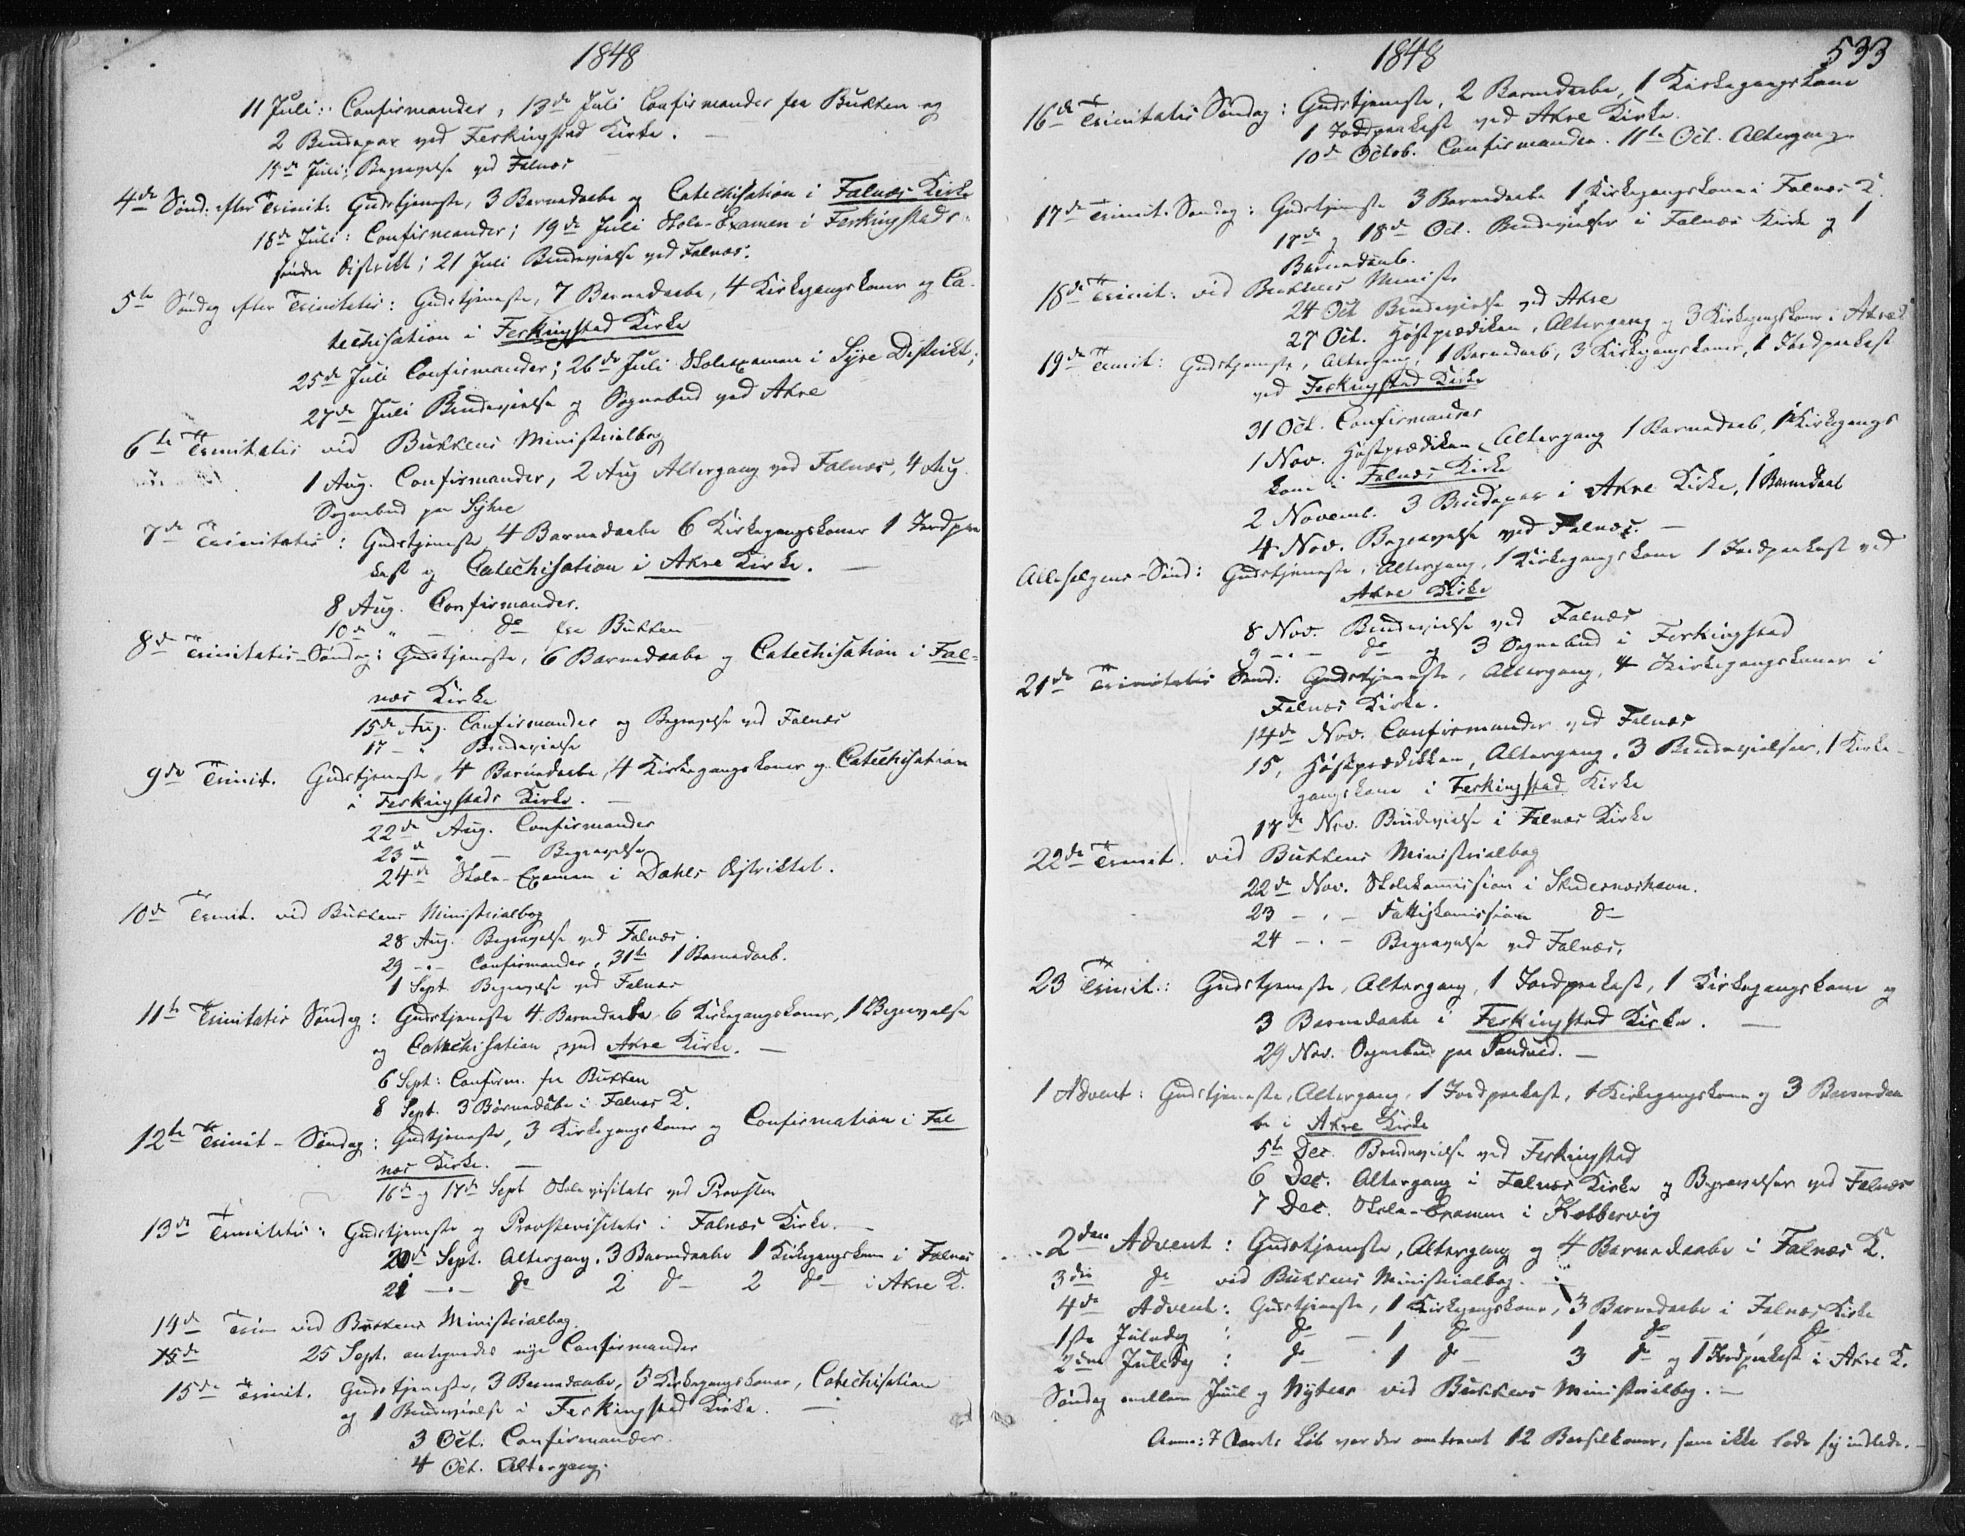 1848
11 Juli: Confirmander, 13de Juli Confirmander fra Bukken og
2 Brudepar ved Ferkingstad Kirke. —
15de Juli: Begravelse ved Falnæs
4de Sønd: efter Trinit: Gudstjeneste, 3 Barnedaabe og Catechisation i Falnæs Kirke
18de Juli: Confirmander; 19de Juli Skole-Examen i Ferkingstads
søndre District; 21 Juli Brudevielse ved Falnæs.
5te Søndag efter Trinitatis: Gudstjeneste, 7 Barnedaabe, 4 Kirkegangskoner og Ca-
techisation i Ferkingstad Kirke
25de Juli Confirmander; 26de Juli Skolexamen i Syre Distrikt;
27de Juli Brudevielse og Sognebud ved Akre
6te Trinitatis vid Bukkens Ministrialbog
1 Aug. Confirmander, 2 Aug Altergang ved Falnæs, 4 Aug
Sognebud paa Syhre
7de Trinitatis: Gudstjeneste 4 Barnedaabe 6 Kirkegangskoner 1 Jordpaa
kast og Catechisation i Akre Kirke. —
8 Aug. Confirmander.
10de " — do fra Bukken
8de Trinitatis-Søndag: Gudstjeneste, 6 Barnedaabe og Catechisation i Fal-
næs Kirke
15de Aug. Confirmander og Begravelse ved Falnæs
17 — " Brudevielse
9de Trinit. Gudstjeneste, 4 Barnedaabe, 4 Kirkegangskoner og Catechisation
i Ferkingstads Kirke. —
22de Aug. Confirmander
23de " — Begravelse
24de Skole-Examen i Dahls Distriktet.
10de Trinit. vid Bukkens Ministrialbog
28 Aug. Begravelse ved Falnæs.
29 — " — Confirmander, 31te 1 Barnedaab.
1 Sept. Begravelse ved Falnæs
11te Trinitatis Søndag: Gudstjeneste 4 Barnedaabe, 6 Kirkegangskoner, 1 Begravelse
og Catechisation ved Akre Kirke. —
6 Sept: Confirm. fra Bukken
8 Sept. 3 Barnedaabe i Falnæs K.
12te Trinit-Søndag: Gudstjeneste, 3 Kirkegangskoner og Confirmation i Fal
næs Kirke. —
16de og 17de Sept Skolevisitats ved Provsten
13de Trinitatis: Gudstjeneste og Provstevisitats i Falnæs Kirke. —
20de Sept. Altergang, 3 Barnedaabe 1 Kirkegangskone i Falnæs
21 — " — do 2 do 2 do i Akre K.
14de Trin vid Bukkens Ministrialbog.
15de 25 Sept. antegnedes nye Confirmander
15de Trinit. Gudstjeneste, 3 Barnedaabe, 3 Kirkegangskoner, Catechisation
og 1 Brudevielse i Ferkingstad Kirke. —
3 Oct. Confirmander.
4 Oct. Altergang.
1848 533
16de Trinitatis Søndag: Gudstjeneste, 2 Barnedaabe, 1 Kirkegangskone
1 Jordpaakast ved Akre Kirke.
10de Octob. Confirmander. 11te Oct. Altergang.
17de Trinit. Søndag: Gudstjeneste 3 Barnedaabe 1 Kirkegangskone i Falnæs K.
17de og 18de Oct. Brudevielser i Falnæs Kirke og 1
Barnedaab.
18de Trinit: vid Bukkens Minist.
24 Oct Brudevielse ved Akre
27 Oct. Høstprædiken, Altergang og 3 Kirkegangskoner i Akre K
19de Trinit: Gudstjeneste, Altergang, 1 Barnedaab, 3 Kirkegangskoner, 1 Jordpaakast
ved Ferkingstad Kirke
31 Oct. Confirmander
1 Nov. Høstprædiken, Altergang 1 Barnedaab, 1 Kirkegangs
kone i Falnæs Kirke
2 Novemb. 3 Brudepar i Akre Kirke, 1 Barnedaab
4 Nov. Begravelse ved Falnæs. —
Allehelgens-Sønd: Gudstjeneste, Altergang, 1 Kirkegangskone 1 Jordpaakast ved
Akre Kirke
8 Nov. Brudevielse ved Falnæs
9 — " — do og 3 Sognebud i Ferkingstad
21de Trinitatis Sønd: Gudstjeneste, Altergang, 4 Kirkegangskoner i
Falnæs Kirke.
14de Nov. Confirmander ved Falnæs
15, Høstprædikken, Altergang, 3 Brudevielser, 1 Kirke-
gangskone i Ferkingstad Kirke
17de Nov. Brudevielse i Falnæs Kirke
22de Trinit. vid Bukkens Ministrialbog
22de Nov. Skolekomission i Skudesnæshavn.
23 — " — Fattigkomission do
24 — " — Begravelse ved Falnæs.
23 Trinit.: Gudstjeneste, Altergang, 1 Jordpaakast, 1 Kirkegangskone og
3 Barnedaabe i Ferkingstad Kirke. —
29 Nov. Sognebud paa Sandved. —
1 Advent: Gudstjeneste, Altergang, 1 Jordpaakast, 1 Kirkegangskone og 3 Barnedaa
be i Akre Kirke
5te Dec. Brudevielse ved Ferkingstad
6 Dec. Altergang i Falnæs Kirke og Begravelser ved Falnæs
7 Dec. Skole-Examen i Kobbervig
2den Advent: Gudstjeneste, Altergang og 4 Barnedaabe i Falnæs K.
3die do vid Bukkens Ministrialbog. —
4de Advent: Gudstjeneste, 1 Kirkegangskone, 3 Barnedaabe i Falnæs Kirke
1ste Juledag : do — 1 do 1 do do
2den Juledag : do 1 do 3 do og 1 Jordpaakast i Akre K.
Søndag mellem Juul og Nytaar vid Bukkens Ministrialbog. —
Anm: I Aarets Løb var der omtrent 12 Barselkoner, som ikke lode sig indlede. —